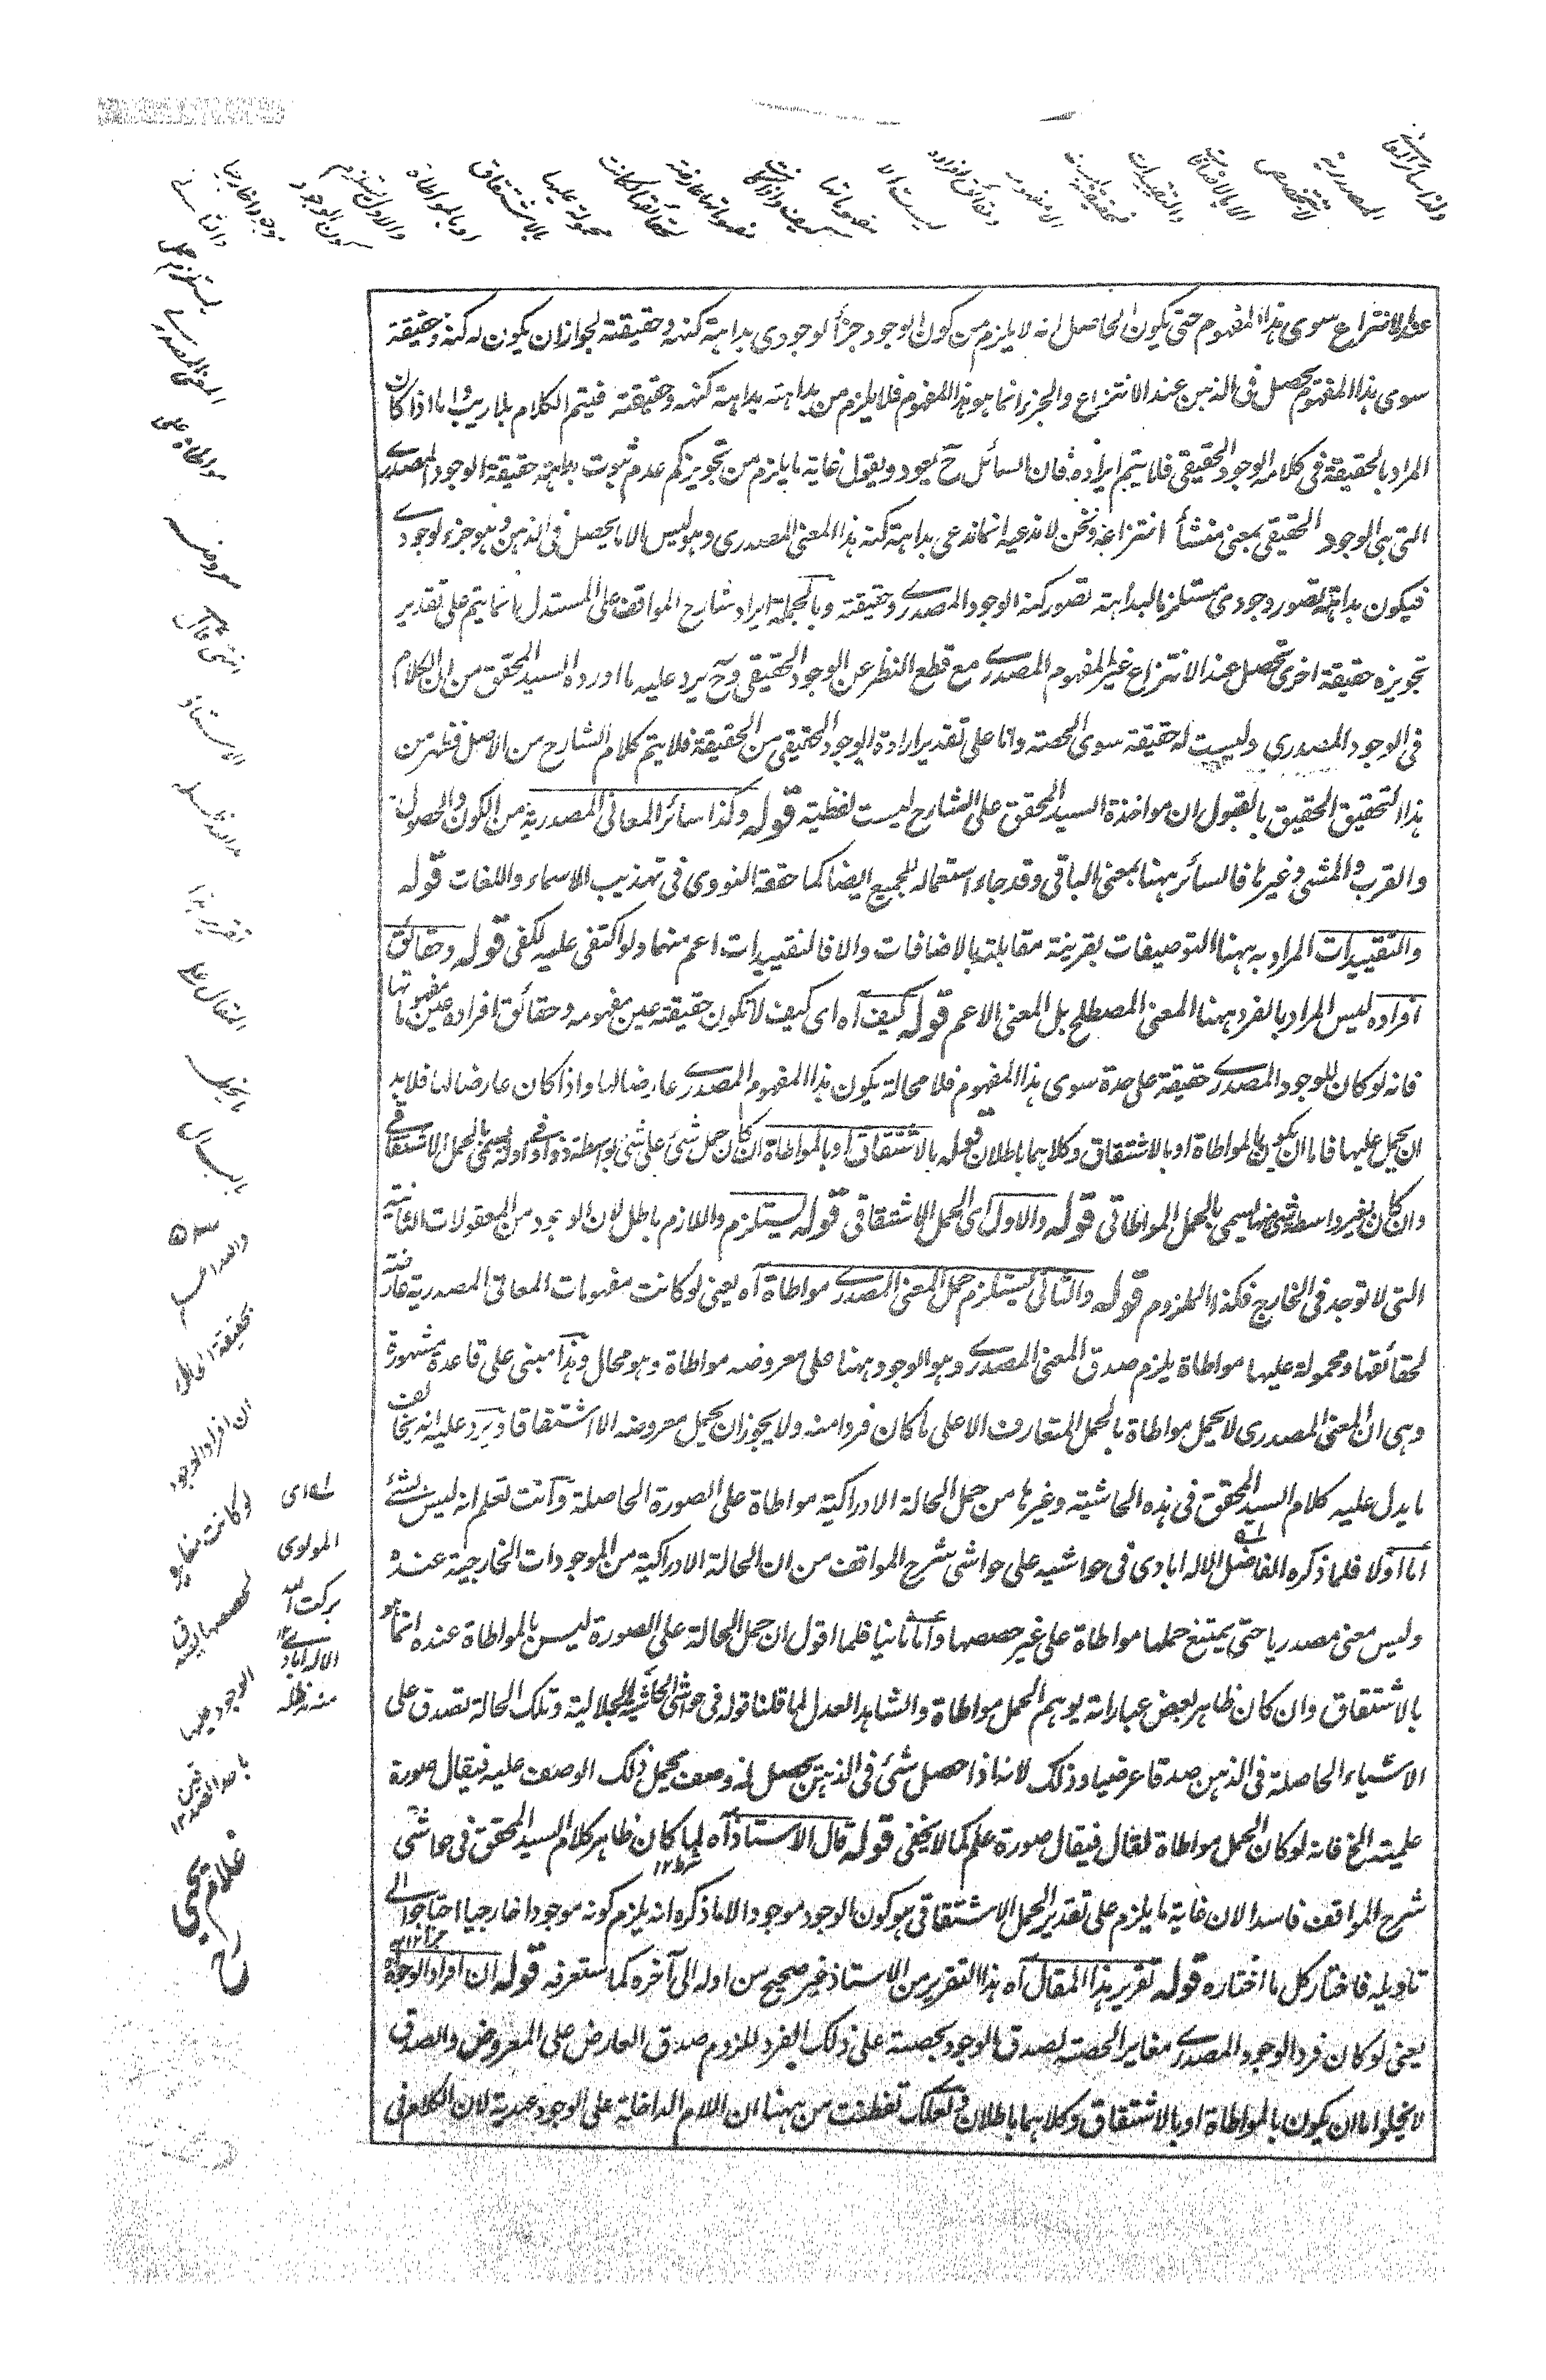 وكذا سائر المعانى
المصدرية
والتقييدات
وحقائق افراده
ليست الا
مفهوماتها
كيف ولو كانت
مفهوماتها عارضة
لحقائقها لكانت
محمولة عليها
بالاشتقاق
او بالمواطاة
والاول يستلزم
كون الوجود
موجودا خارجيا
والثانى
يستلزم حمل
المعنى المصدرى
مواطاة على
معروضه
انتهى قال
الاستاذ
تقرير هذا
المقال على
ان افراد الوجود
لو كانت مغايرة
لحصصها يصدق
الوجود عليها
غلام يحيى
اى
المولوى
بركت الله
الاله آبادى
منه مد ظله
عند الانتزاع سوى هذا المفهوم حتى يكون الحاصل انه لا يلزم من كون الوجود جزأ لوجودى بداهة كنهه وحقيقته لجواز ان يكون له كنه وحقيقة
سوى هذا المفهوم يحصل فى الذهن عند الانتزاع والجزء انما هو هذا المفهوم فلا يلزم من بداهته بداهة كنهه وحقيقته فيتم الكلام بلا ريب واما اذا كان
المراد بالحقيقة فى كلامه الوجود الحقيقى فلا يتم ايراده فان السائل ح يعود ويقول غاية ما يلزم من تجويزكم عدم ثبوت بداهة حقيقة الوجود المصدرى
التى هى الوجود الحقيقى بمعنى منشأ انتزاعه ونحن لا ندعيه انما ندعى بداهة كنه هذا المعنى المصدرى وهو ليس الا ما يحصل فى الذهن وهو جزء لوجودى
فيكون بداهة تصور وجودى مستلزمة لبداهة تصور كنه الوجود المصدرى وحقيقته وبالجملة ايراد شارح المواقف على المستدل انما يتم على تقدير
تجويزه حقيقة اخرى تحصل عند الانتزاع غير المفهوم المصدرى مع قطع النظر عن الوجود الحقيقى وح يرد عليه ما اورده السيد المحقق من ان الكلام
فى الوجود المصدرى وليست له حقيقة سوى الحصة واما على تقدير ارادة الوجود الحقيقى من الحقيقة فلا يتم كلام الشارح من الاصل فظهر من
هذا التحقيق الحقيق بالقبول ان مواخذة السيد المحقق على الشارح ليست لفظية قوله وكذا سائر المعانى المصدرية من الكون والحصول
والقرب والمشى وغيرها فالسائر ههنا بمعنى الباقى وقد جاء استعماله للجميع ايضا كما حققه النووى فى تهذيب الاسماء واللغات قوله
والتقييدات المراد به ههنا التوصيفات بقرينة مقابلته بالاضافات والا فالتقييدات اعم منهما ولو اكتفى عليه لكفى قوله وحقائق
افراده ليس المراد بالفرد ههنا المعنى المصطلح بل المعنى الاعم قوله كيف آه اى كيف لا تكون حقيقته عين مفهومه وحقائق افراده عين مفهوماتها
فانه لو كان للوجود المصدرى حقيقة على حدة سوى هذا المفهوم فلا محالة يكون هذا المفهوم المصدرى عارضا لها واذا كان عارضا لها فلا بد
ان يحمل عليها فاما ان يكون بالمواطاة او بالاشتقاق وكلاهما باطلان قوله بالاشتقاق او بالمواطاة ان كان حمل شئ على شئ بواسطة ذو او فى او له يسمى بالحمل الاشتقاقى
وان كان بغير واسطة شئ منها يسمى بالحمل المواطاتى قوله والاول اى الحمل الاشتقاقى قوله يستلزم واللازم باطل لان الوجود من المعقولات الثانية
التى لا توجد فى الخارج فكذا الملزوم قوله والثانى يستلزم حمل المعنى المصدرى مواطاة آه يعنى لو كانت مفهومات المعانى المصدرية عارضة
لحقائقها ومحمولة عليها مواطاة يلزم صدق المعنى المصدرى وهو الوجود ههنا على معروضه مواطاة وهو محال وهذا مبنى على قاعدة مشهورة
وهى ان المعنى المصدرى لا يحمل مواطاة بالحمل المتعارف الا على ما كان فردا منه ولا يجوز ان يحمل معروضه الا اشتقاقا ويرد عليه انه يخالف
ما يدل عليه كلام السيد المحقق فى هذه الحاشية وغيرها من حمل الحالة الادراكية مواطاة على الصورة الحاصلة وانت تعلم انه ليس بشئ
اما اولا فلما ذكره الفاضل الاله ابادى فى حواشيه على حواشى شرح المواقف من ان الحالة الادراكية من الموجودات الخارجية عنده
وليس معنى مصدريا حتى يمتنع حملها مواطاة على غير حصصها واما ثانيا فلما اقول ان حمل الحالة على الصورة ليس بالمواطاة عنده انما هو
بالاشتقاق وان كان ظاهر بعض عباراته يوهم الحمل مواطاة والشاهد العدل لما قلنا قوله فى حواشى الحاشية الجلالية وتلك الحالة تصدق على
الاشياء الحاصلة فى الذهن صدقا عرضيا وذلك لانه اذا حصل شئ فى الذهن يحصل له وصف يحمل ذلك الوصف عليه فيقال صورة
علمية الخ فانه لو كان الحمل مواطاة لقال فيقال صورة علم كما لا يخفى قوله قال الاستاذ آه لما كان ظاهر كلام السيد المحقق فى حواشى
شرح المواقف فاسدا لان غاية ما يلزم على تقدير الحمل الاشتقاقى هو كون الوجود موجودا لا ما ذكره انه يلزم كونه موجودا خارجيا احتاجوا الى
تاويله فاختار كل ما اختاره قوله تقرير هذا المقال آه هذا التقرير من الاستاذ غير صحيح من اوله الى آخره كما ستعرفه قوله ان افراد الوجود
يعنى لو كان فرد الوجود المصدرى مغاير الحصة لصدق الوجود بحصة على ذلك الفرد للزوم صدق العارض على المعروض والصدق
لا يخلوا اما ان يكون بالمواطاة او بالاشتقاق وكلاهما باطلان ولعلك تفطنت من ههنا ان اللام الداخلة على الوجود عهدية لان الكلام فى